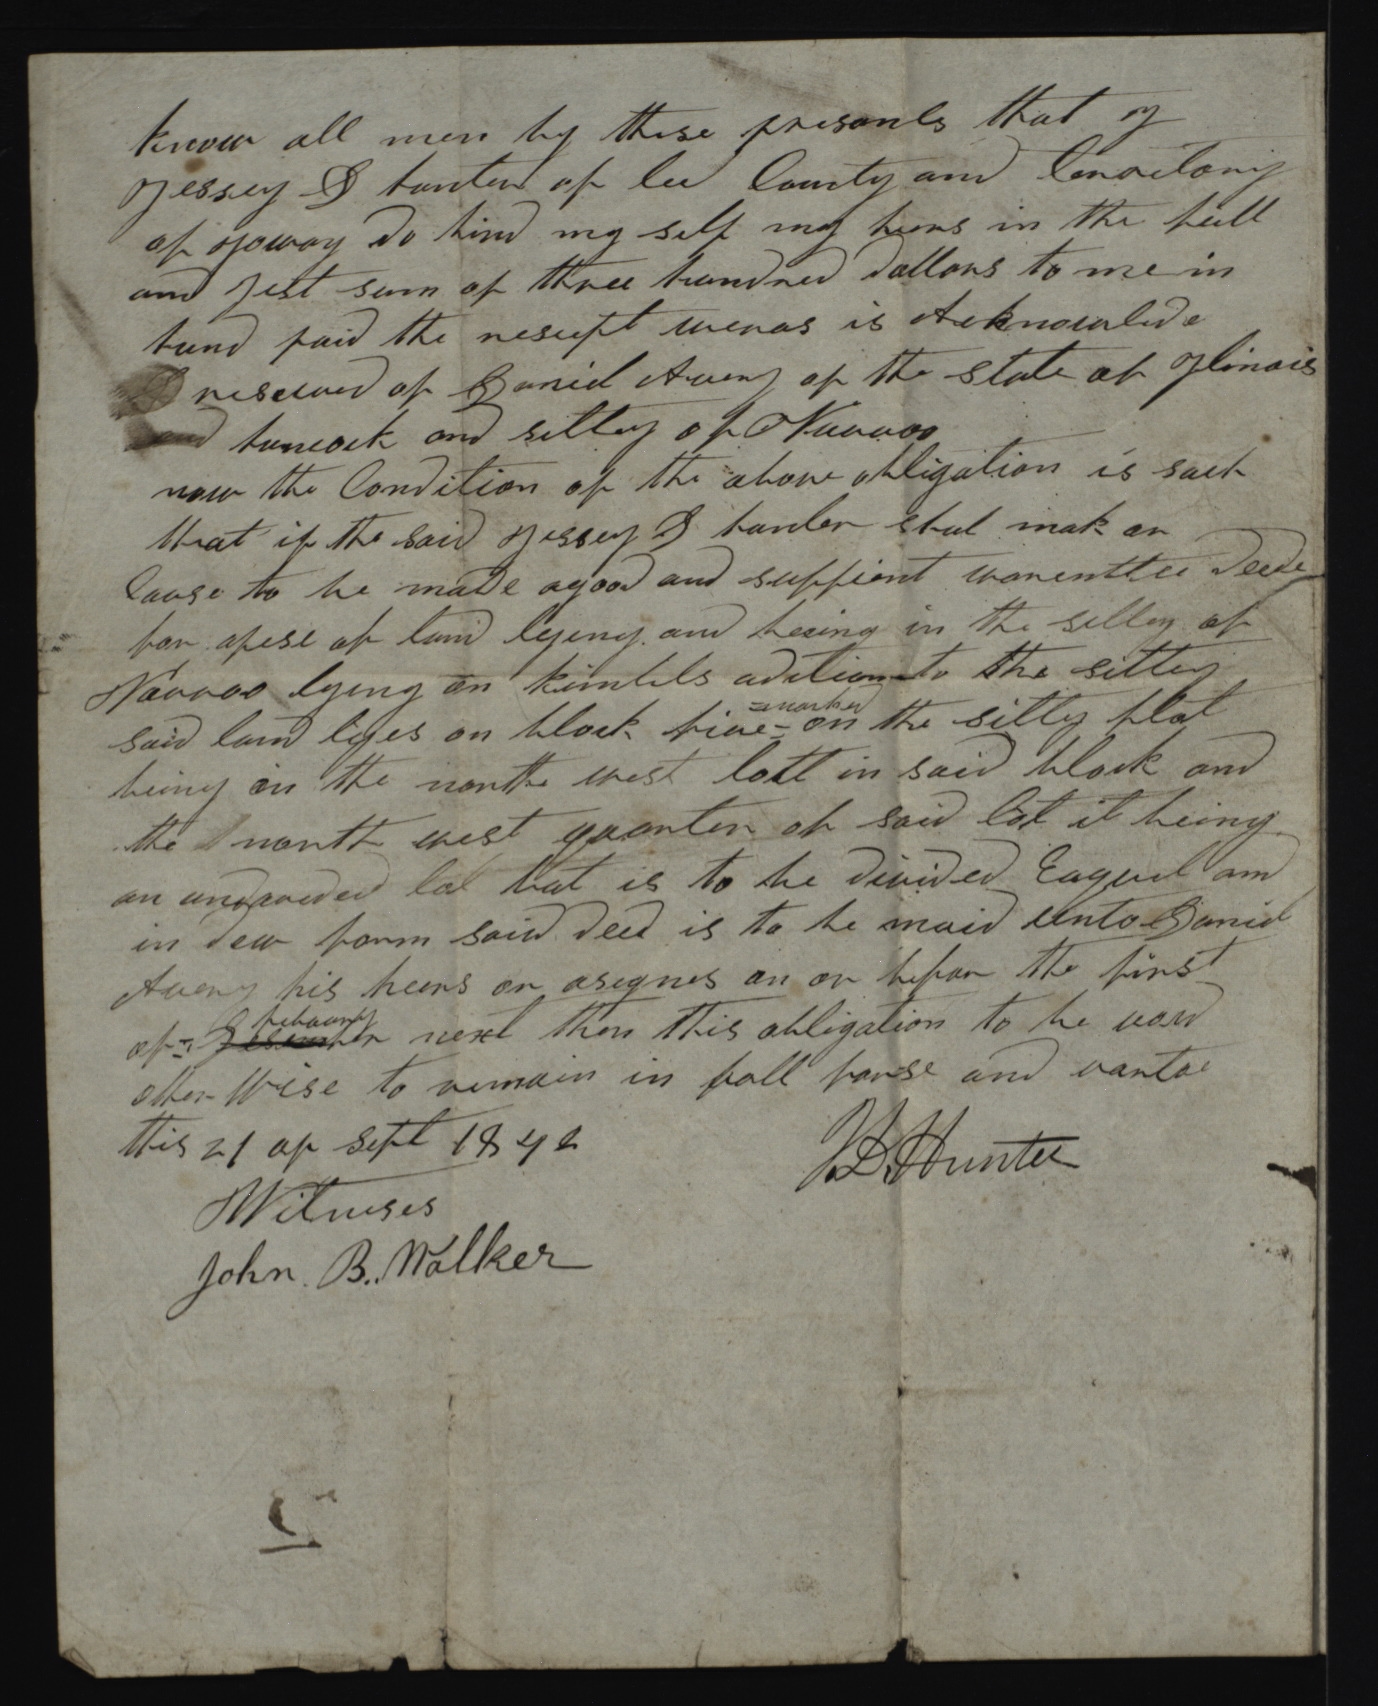 know all men by these presants that I
Jessey D hunter of lee County and terretory
of Ioway do bind my self my heirs in the full
and Jest sum of three hundred dollars to me in
hand paid the reseipt weras is Acknowlede
reseived of Daniel Avery of the state of Ilinois
and hancock and sittey of Nauvoo
now the Condition of the above obligation is such
that if the said Jessey D hunter shal mak or
Cause to be made agood and suffient warenttee deede
for apese of land lyeing and being in the sittey of
Nauvoo lying on kimbls adition to the sittey
=marked
said land lyes on block five = on the sitty plat
being in the north west lott in said block and
the north west quarter of said lot it being
an undevided lot but is to be divided Eaquel and
in dew form said deed is to be maid unto Daniel
Avery his heers or asegnes on or befor the first
febuary
of = Desember next then this obligation to be void
other Wise to remain in full forse and vartue
this 21 of sept 1842
J. D. Hunter
Witneses
John. B. Walker